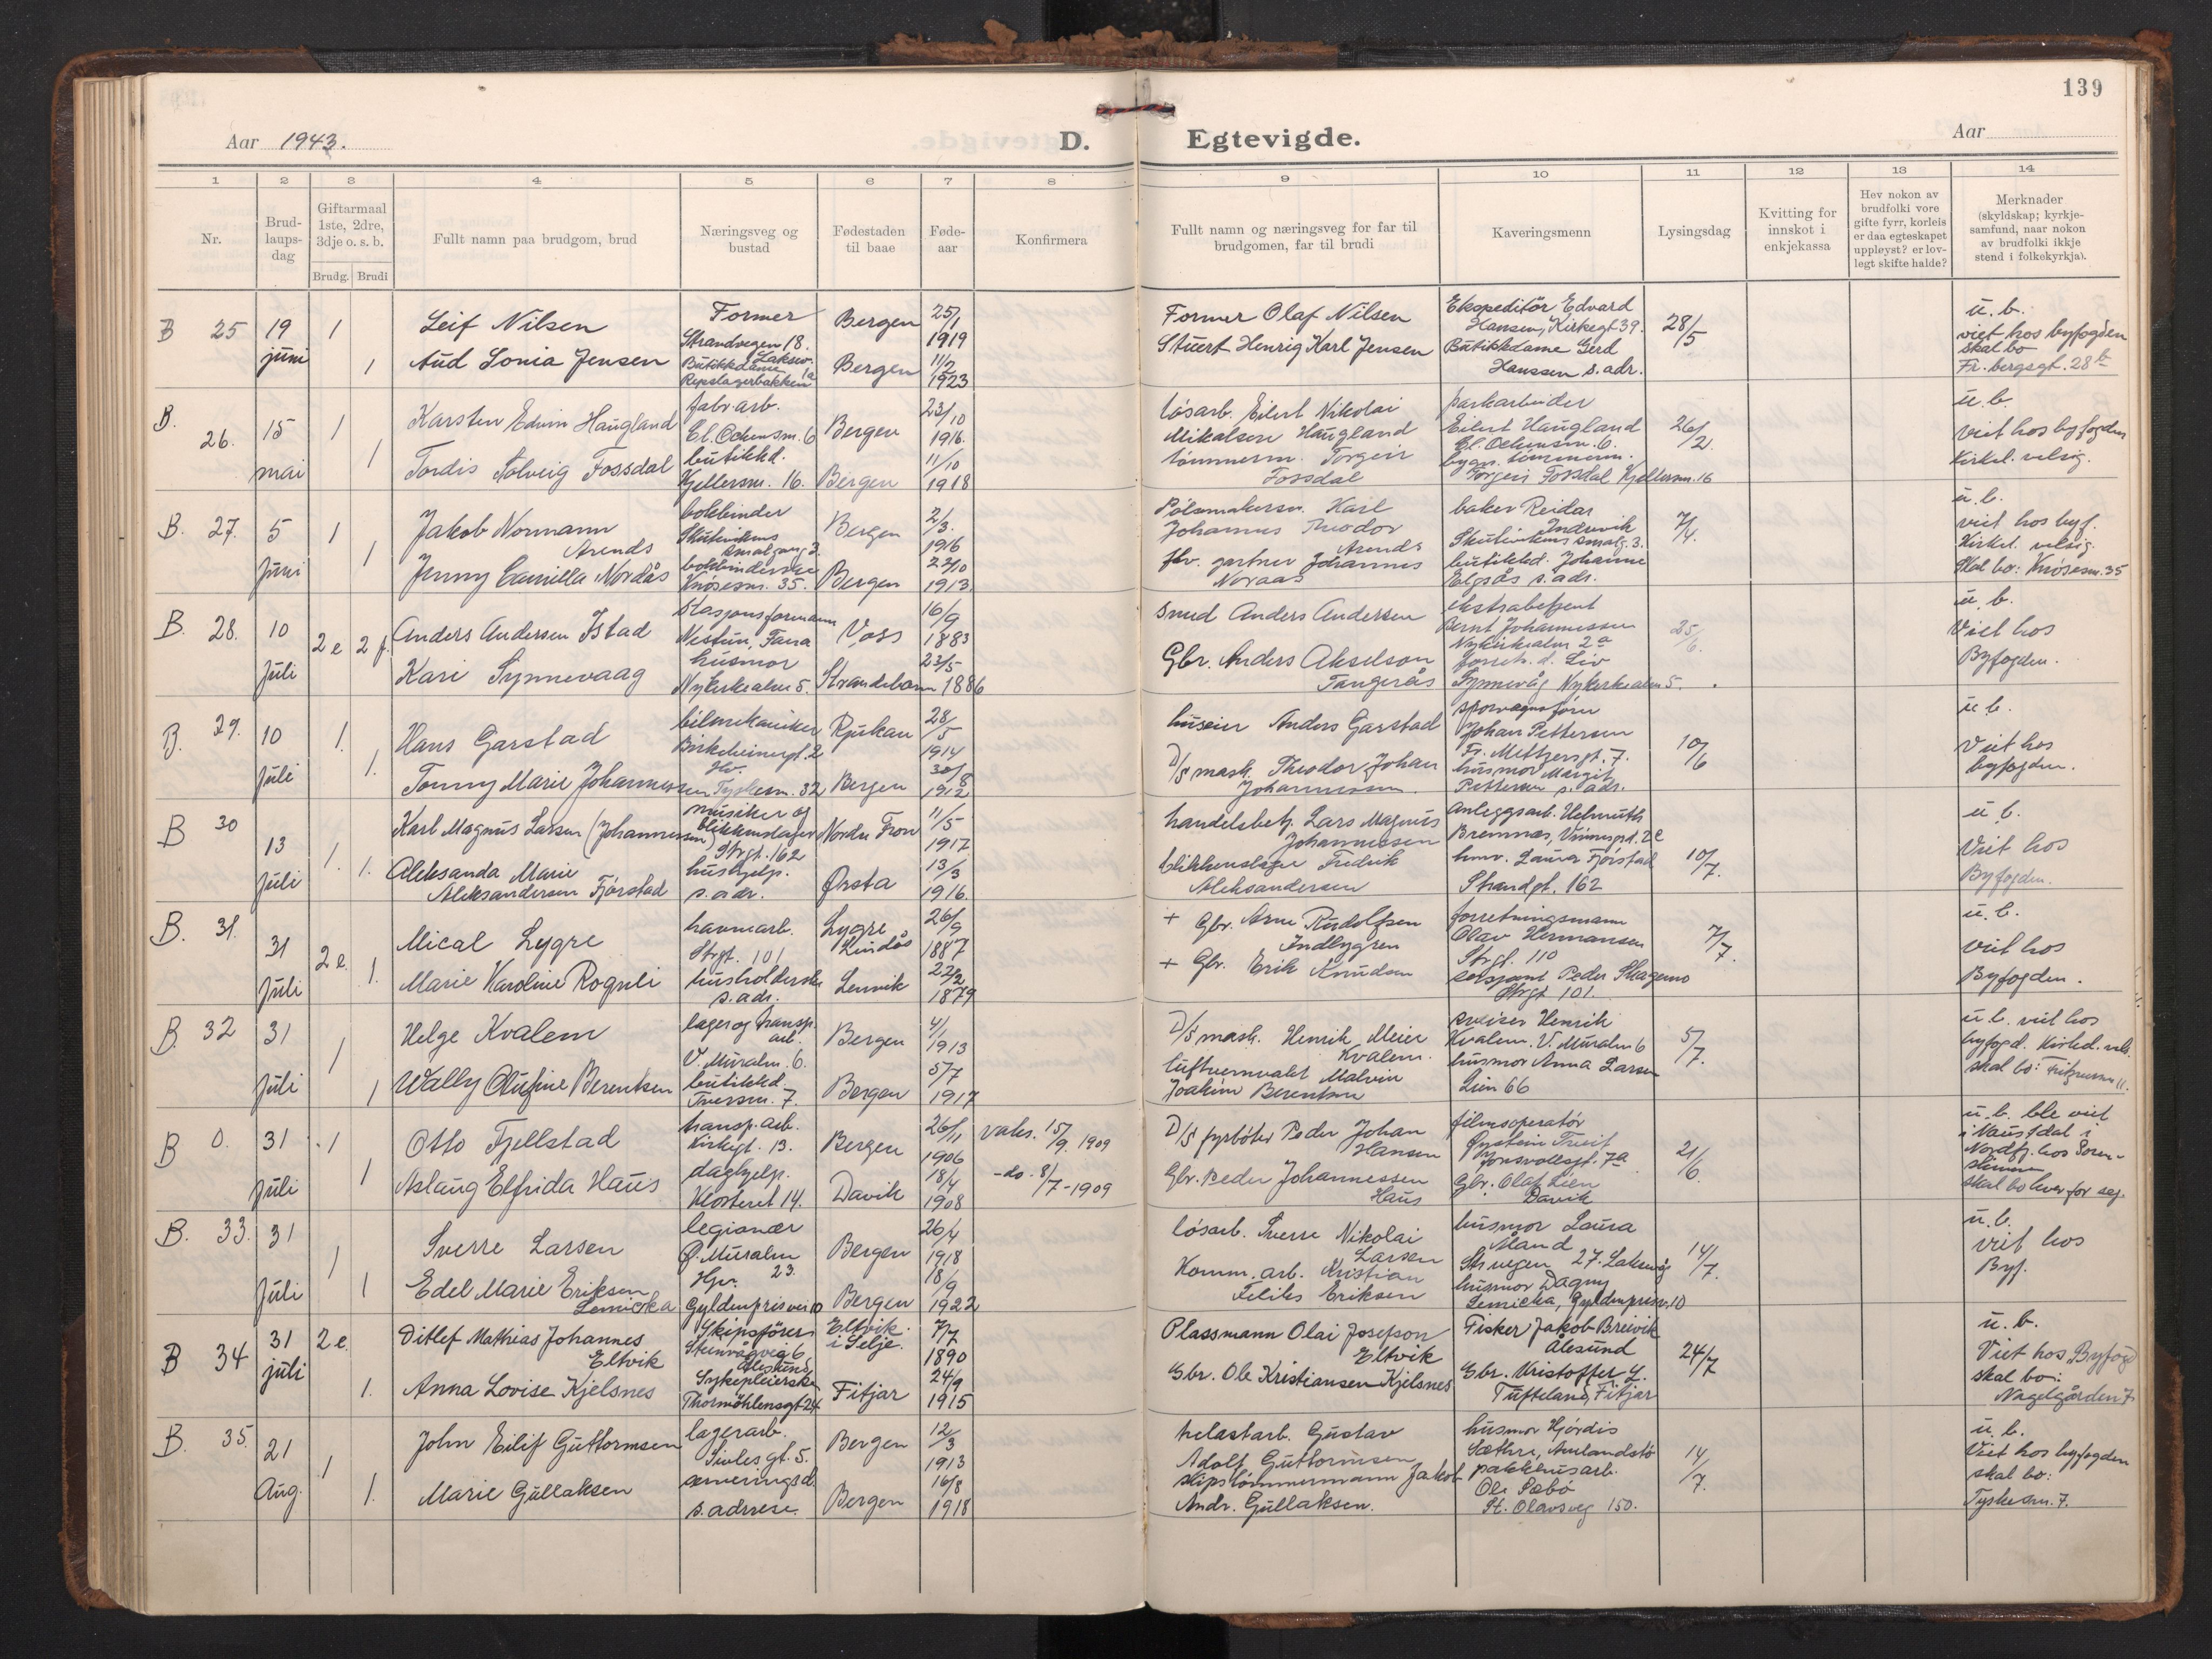 139
Aar 1943.
D. Egtevigde.
Aar
1 2 3 4 5 6 7 8 9 10 11 12 13 14
Nr.
Brud-
laups-
dag
Giftarmaal
1ste, 2dre,
3dje o. s. b.
Brudg. Brudi
Fullt namn paa brudgom, brud
Næringsveg og
bustad
Fødestaden
til baae
Føde-
aar
Konfirmera
Fullt namn og næringsveg for far til
brudgomen, far til brudi
Kaveringsmenn
Lysingsdag
Kvitting for
innskot i
enkjekassa
Hev nokon av
brudfolki vore
gifte fyrr, korleis
er daa egteskapet
uppløyst? er lov-
legt skifte halde?
Merknader
(skyldskap; kyrkje-
samfund, naar nokon
av brudfolki ikkje
stend i folkekyrkja).
B 25 19 juni 1 1
Leif Nilsen
Aud Sonia Jensen
Former
Strandvegen 18.
Laksev.
Butikkdame
Repslagerbakken 1a
Bergen
Bergen
25/1 1919
11/2 1923
Former Olaf Nilsen
Stuert Henrig Karl Jensen
Ekspeditör Edvard
Hansen, Kirkegt 39.
Butikkdame Gerd
Hanssen s. adr.
28/5
u. b.
viet hos byfogden
skal bo
Fr. bergsgt. 28b
B. 26. 15 mai 1 1
Karsten Edvin Haugland
Tordis Solveig Fossdal
fabr. arb.
butikkd.
Kjellersm. 16.
Bergen
Bergen
23/10 1916.
11/10 1918
lösarb. Eilert Nikolai
Mikalsen Haugland
tömmerm. Torgeir
Fossdal
parkarbeider
Eilert Haugland
bygn. tömmerm.
Torgeir Fossdal Kjellersm. 16
26/2.
u. b.
viet hos byfogden
Kirkel. velsig.
B. 27. 5 Juni 1 1
Jakob Normann
Arends
Jenny Camilla Nordås
bokbinder
Skutevikens
smalgang 3.
bokbinderske
Knösesm. 35.
Bergen
Bergen
2/3. 1916
22/10 1913.
Pölsemakersv. Karl
Johannes Theodor
Arends
fhv. gartner Johannes
Noraas
baker Reidar
Indrevik
Skutevikens smalg. 3.
butikkd. Johanne
Elgsås s. adr.
7/4.
u. b.
viet hos byf.
Kirkel. velsig.
Skal bo: Knösesm. 35
B. 28. 10 Juli 2 e 2 f.
Anders Andersen Istad
Kari Synnevaag
stasjonsformann
Nestun, Fana
husmor
Nykirkealm 5.
Voss
Strandebarm
16/9 1883
23/5 1886
smed Anders Andersen
Gbr. Anders Akselson
Tangerås
ekstrabetjent
Bernt Johannessen
Nykirkealm 2a
Synnevåg Nykirkealm 5.
25/6.
u. b.
Viet hos
Byfogden.
B. 29. 10 Juli 1. 1.
Hans Garstad
Tonny Marie Johannessen
bilmekaniker
Birkebeinergt. 2
Hv.
Tyskesm. 32
Rjukan
Bergen
28/5 1914
30/8 1912
huseier Anders Garstad
D/S mask. Theodor Johan
Johannessen.
sporvognsförer
Johan Pettersen
Fr. Meltzersgt. 7.
husmor Margit
Pettersen s. adr.
10/6
u. b.
Viet hos
byfogden.
B 30 13 Juli 1. 1.
Karl Magnus Larsen (Johannessen)
Aleksanda Marie
Aleksandersen Fjörstad
musiker og
blikkenslager
Strgt. 162
hushjelp.
s. adr.
Nordre Fron
Ørsta
11/5 1917
13/3 1916.
handelsbetj. Lars Magnus
Johannessen
blikkenslager Fredrik
Aleksandersen
anleggsarb. Helmuth
Bremnes,
husm. Laura Fjörstad
Strandgt. 162
10/7.
u. b.
Viet hos
Byfogden.
B. 31. 31 Juli 2 e. 1.
Mical Lygre
Marie Karoline Rognli
havnearb.
Strgt. 101
husholderske
s. adr.
Lygre
Lenvik
26/9 1887
22/2 1879
+ Gbr. Arne Rudolfsen
Indbygren
+ Gbr. Erik Knudsen
forretningsmann
Olav Hermansen
Strgt. 110
sersjant Peder Skagemo
Strgt 101.
7/7.
u. b.
viet hos
Byfogden.
B. 32 31 Juli 1 1
Helge Kvalem
Wally Olufine Berentsen
lager og transp.
arb.
V. Muralm. 6.
butikkd.
Tversm. 7.
Bergen
Bergen
4/1 1913
5/7 1917
D/S mask. Henrik Meier
Kvalem.
luftvernvakt Malvin
Joakim Berentsen
sveiser Henrik
Kvalem. V. Muralm 6
husmor Anna Larsen
Lien 66
5/7.
u. b. viet hos
byfogd. Kirkel. vels.
skal bo:
B 0. 31 Juli 1 1
Otto Fjellstad
Aslaug Elfrida Haus
transp. arb.
Kirkegt. 13.
daghjelp.
Klosteret 14.
Bergen
Davik
26/11 1906
18/4 1908
vaks. 15/9. 1909
-do. 8/7-1909
D/S fyrböter Peder Johan
Hansen
Gbr. Peder Johannessen
Haus
filmoperatör
Øystein
Jonsvollsgt. 7a
Gbr. Olaf Lien
Davik
21/6.
u. b. ble viet
i Naustdal i
Nordfj. hos Soren-
skriveren
skal bo hver for seg.
B. 33. 31 Juli 1 1
Sverre Larsen
Edel Marie Eriksen
Lemicka
legionær
Ø. Muralm
23.
Hv.
Gyldenprisvei 10
Bergen
Bergen
26/4 1918
18/9 1922
lösarb. Sverre Nikolai
Larsen
Komm. arb. Kristian
Feliks Eriksen
husmor Laura
Åland
Str. vegen 27. Laksevåg
husmor Dagny
Lemicka, Gyldenprisv. 10
14/7.
u. b.
viet hos
Byf.
B 34 31 juli 2 e. 1.
Ditlef Mathias Johannes
Eltvik
Anna Lovise Kjelsnes
Skipsförer
Steinvågveg 6
Ålesund
Sykepleierske
Thormöhlensgt 24
Eltvik
i Selje.
Fitjar
7/7 1890
24/9 1915
Plassmann Olai Josefson
Eltvik
Gbr. Ole Kristiansen Kjelsnes
Fisker Jakob Breivik
Ålesund
Gbr. Kristoffer L.
Tufteland, Fitjar
24/7
u. b.
Viet hos Byfogd
skal bo:
Nagelgården 7
B. 35. 21 Aug. 1 1.
John Eilif Guttormsen
Marie Gullaksen
lagerarb.
Sivlesgt. 5.
serveringsd.
s. adresse.
Bergen
Bergen
12/3 1913
16/8 1918
Gustav
Adolf Guttormsen
skipstömmermann Jakob
Andr. Gullaksen.
husmor Hjördis
Sæthre,
pakkhusarb.
Ole Sæbö
St. Olavsveg 150.
14/7.
u. b.
Viet hos byfogden
skal bo:
Tyskesm. 7.